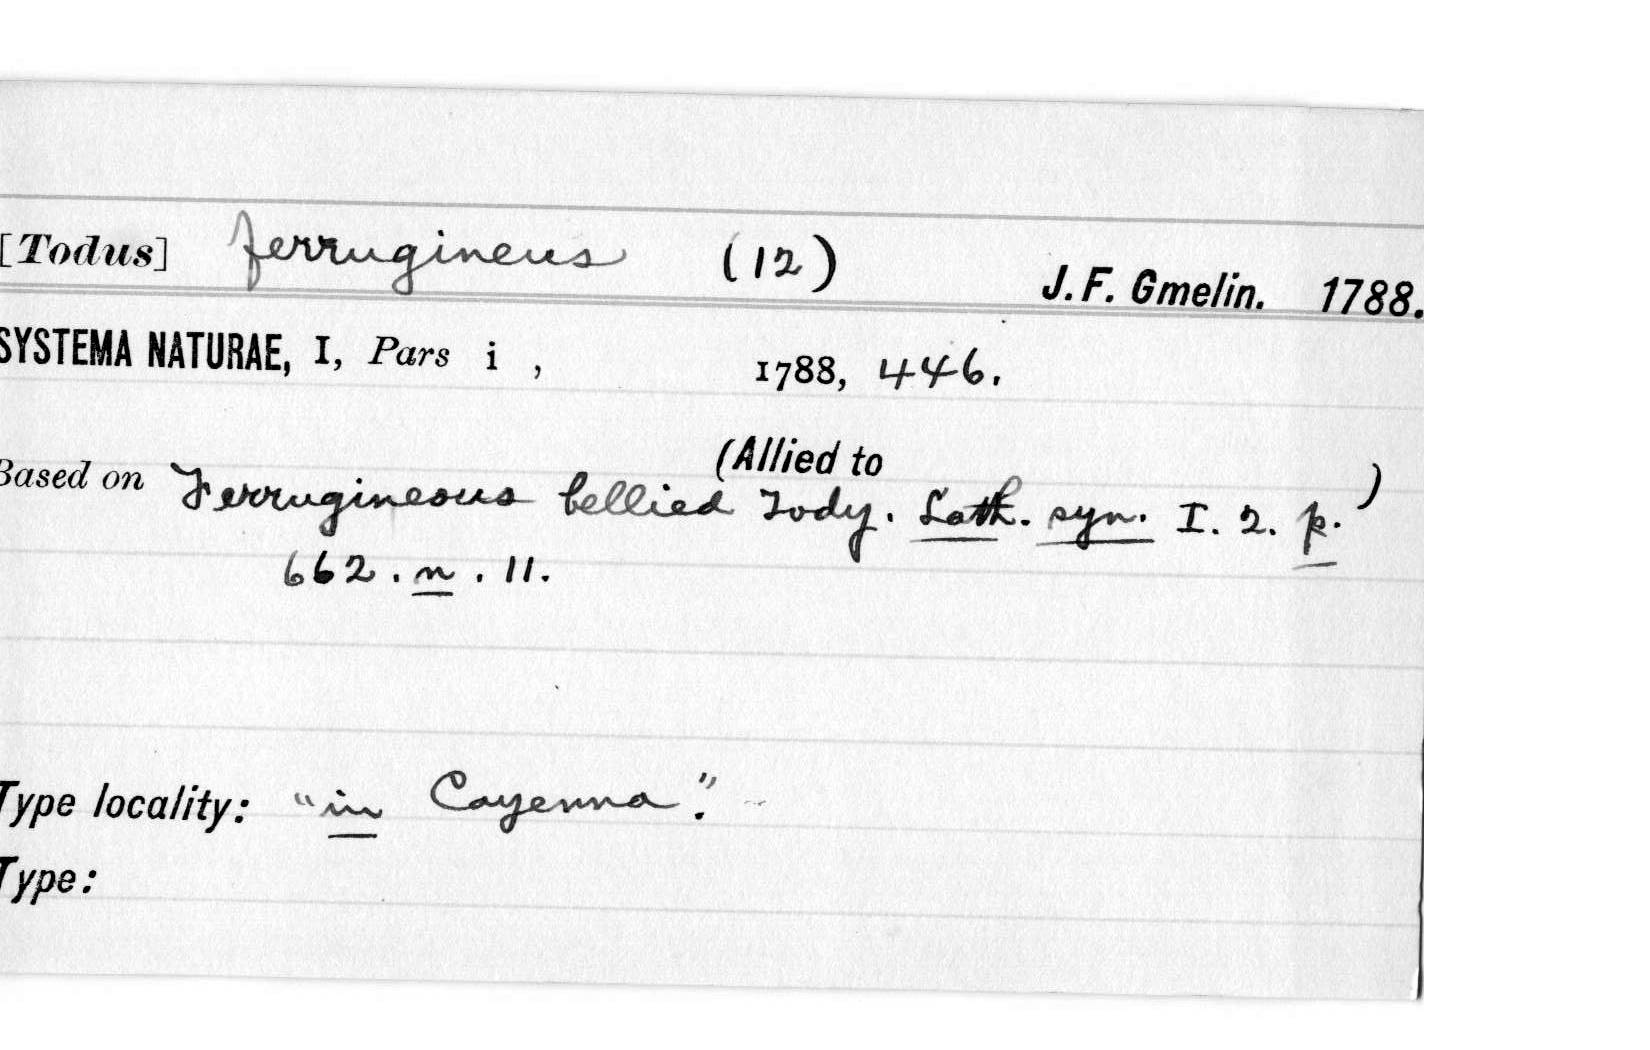 [Todus] ferrugineus (12) J. F. Gmelin. 1788.
SYSTEMA NATURAE, I, Pars i , 1788, 446.
(Allied to
Based on Ferrugineous bellied Tody. Lath. syn. I. 2. p. )
662. n. 11.
Type locality: "in Cayenna".
Type: